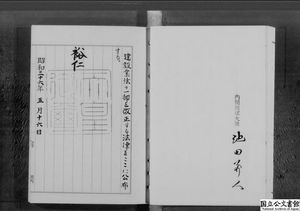 建設業法の一部を改正する法律をここに公布
する。
裕仁
昭和三十六年五月十六日
内閣総理大臣
池田勇人
国立公文書館
National Archives of Japan